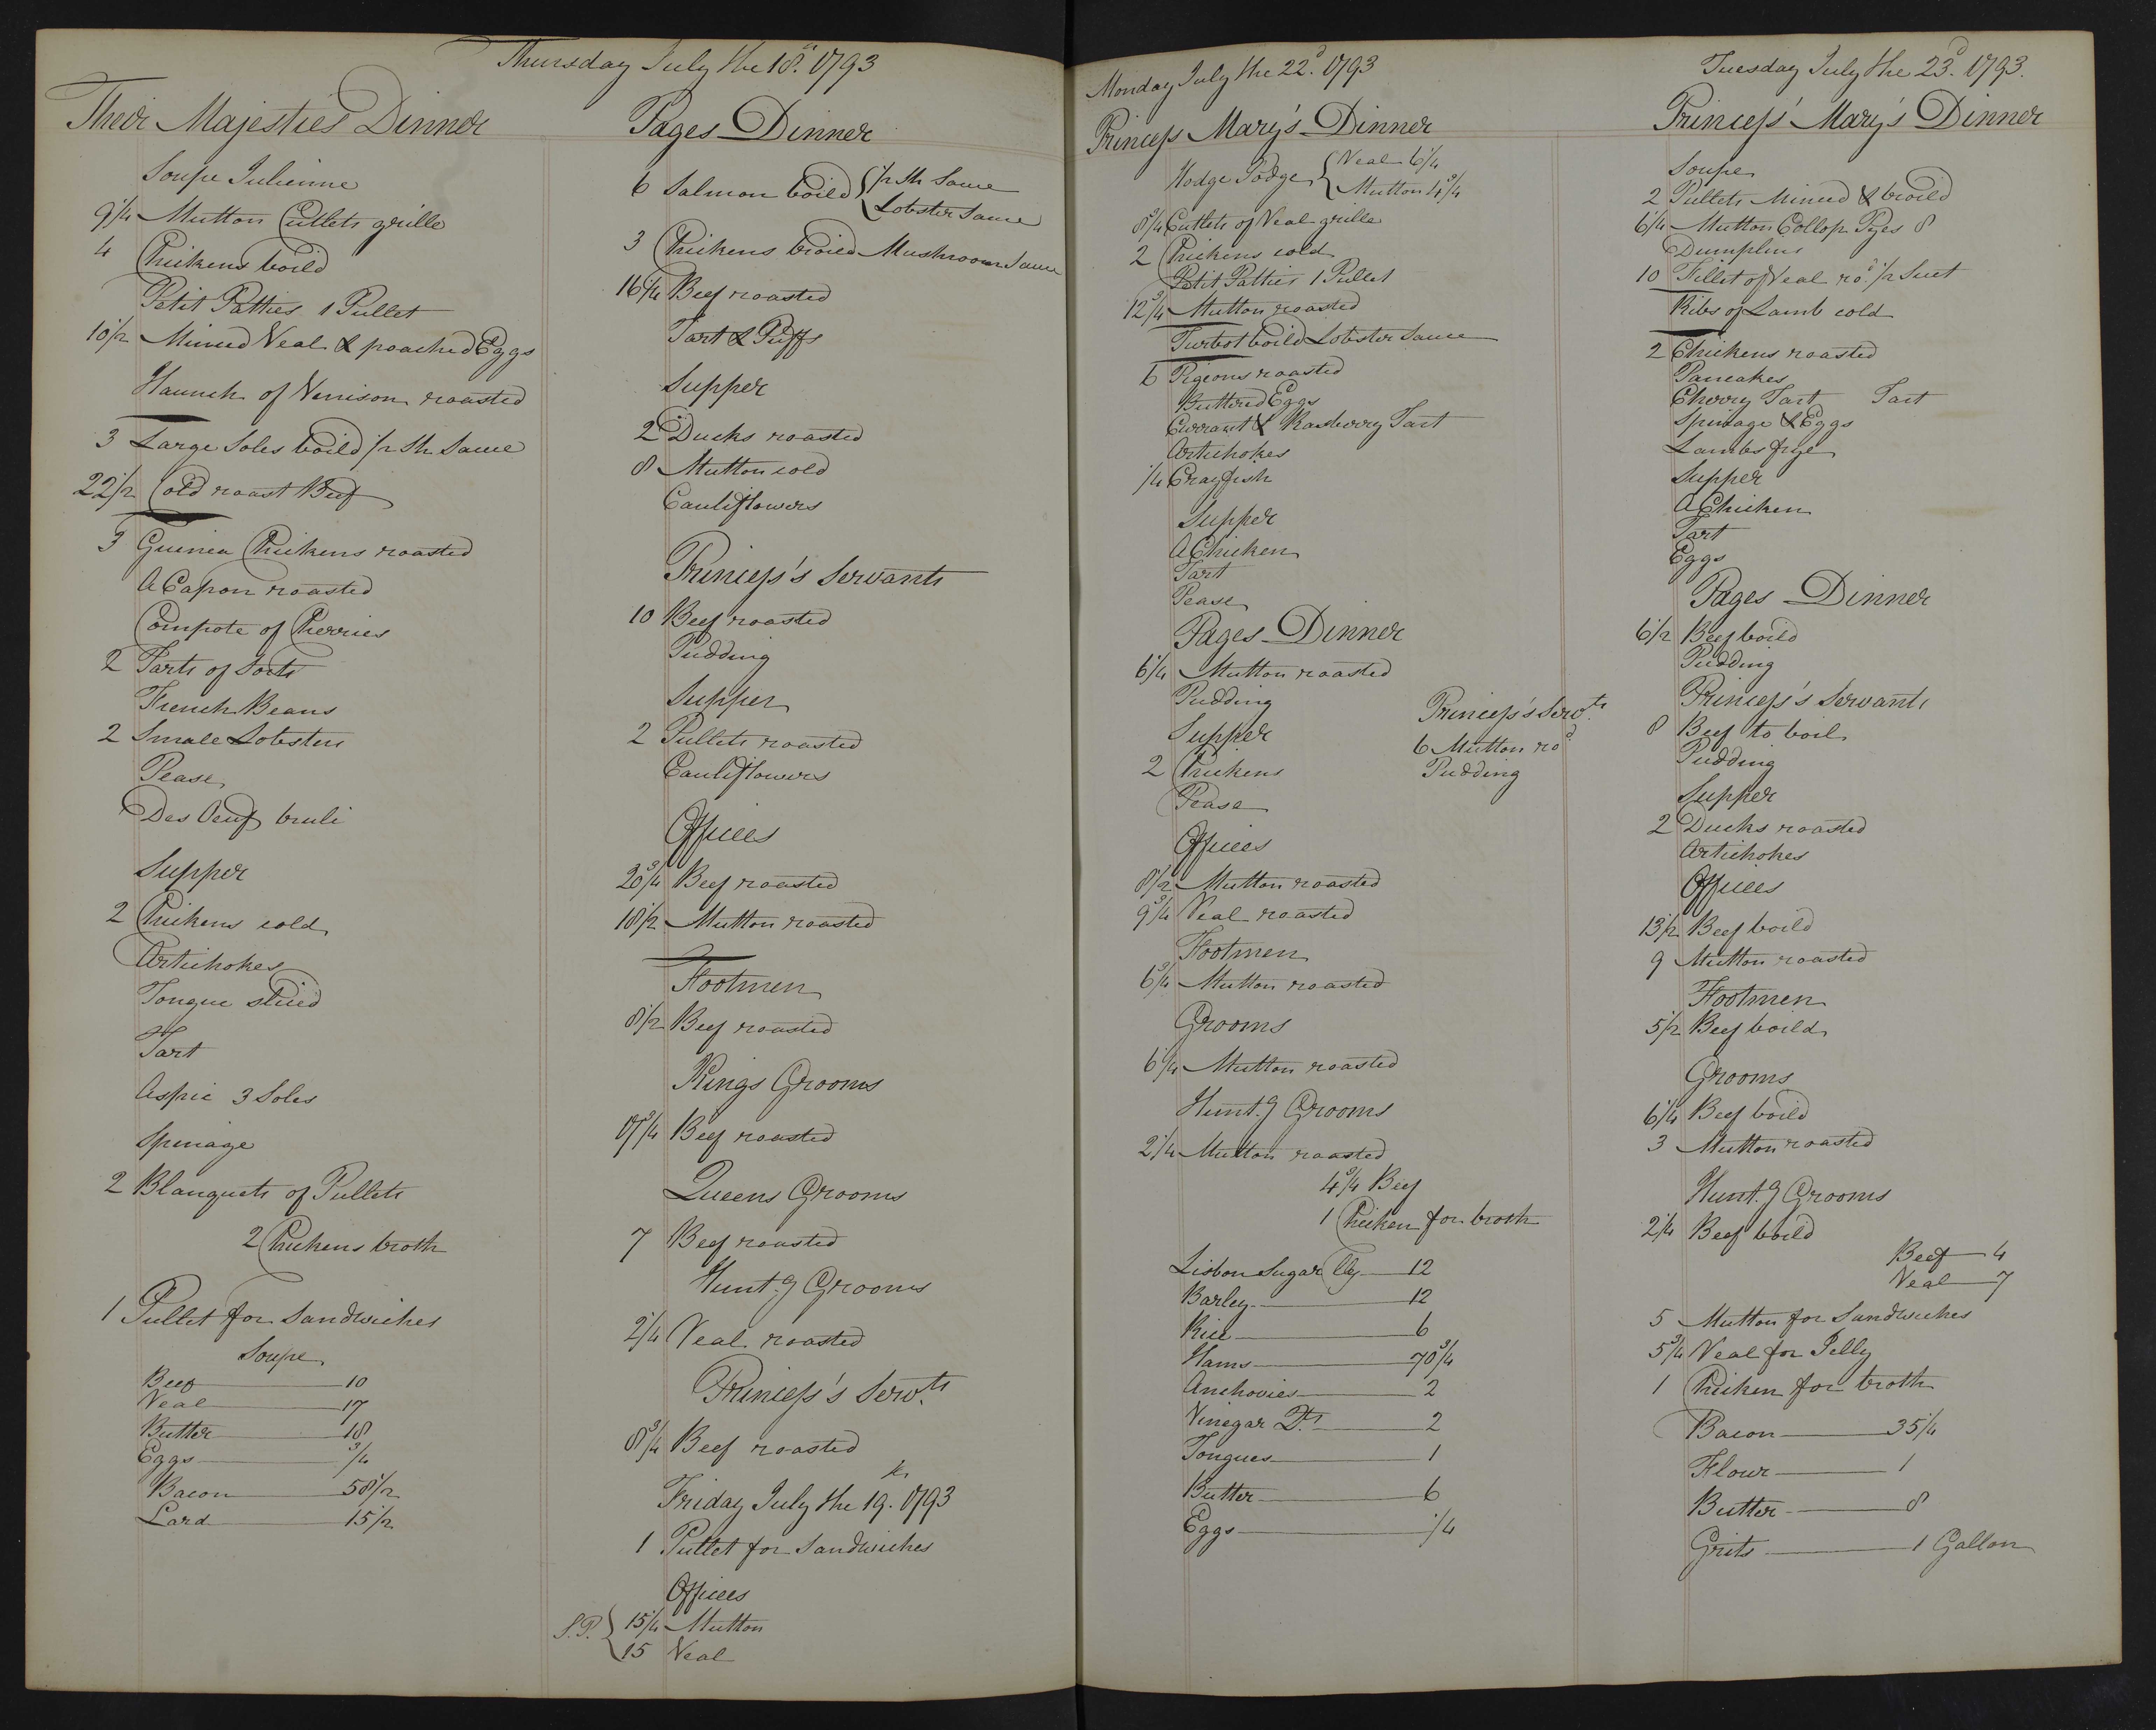 Thursday July the 18th. 1793
Their Majesties Dinner
Soupe Julienne
9 1/4 Mutton Cutlets grille
4 Chickens boild
Petit Patties 1 Pullet
10 1/2 Minced Veal & poached Eggs
Haunch of Venison roasted
3 Large Soles boild Shr Sauce
22 1/2 Cold roast Beef
3 Guinea Chickens roasted
A Capon roasted
Compote of Cherries
2 Tarts of Sorts
French Beans
2 Small Lobsters
Pease
Des Oeufs bruli
Supper
2 Chickens cold
Artichokes
Tongue sliced
Tart
Aspic 3 Soles
Spinage
2 Blanquets of Pullets
2 Chickens broth
1 Pullet for Sandwiches
Soupe
Beef 10
Veal 17
Butter 18
Eggs 3/4
Bacon 58 1/2
Lard 15 1/2
Pages Dinner
6 Salmon boild { Sh Sauce
Lobster Sauce
3 Chickens broild Mushroom Sauce
16 1/4 Beef roasted
Tart & Puffs
Supper
2 Ducks roasted
8 Mutton cold
Cauliflowers
Princess's Servants
10 Beef roasted
Pudding
Supper
2 Pullets roasted
Cauliflowers
Offices
20 3/4 Beef roasted
18 1/2 Mutton roasted
Footmen
8 1/2 Beef roasted
Kings Grooms
17 3/4 Beef roasted
Queens Grooms
7 Beef roasted
Hunt.g Grooms
2 1/4 Veal roasted
Princess's Servts.
8 3/4 Beef roasted
Friday July the 19th. 1793
1 Pullet for Sandwiches
Offices
S.P. { 15 1/4 Mutton
15 Veal
Monday July the 22d. 1793
Princess Mary's Dinner
Hodge Podge { Veal 6 1/4
Mutton 4 3/4
8 3/4 Cutlets of Veal grille
2 Chickens cold
Petit Patties 1 Pullet
12 3/4 Mutton roasted
Turbot boild Lobster Sauce
6 Pigeons roasted
Buttered Eggs
Currant & Rasberry Tart
Artichokes
1/4 Crayfish
Supper
A Chicken
Tart
Pease
Pages Dinner
6 1/4 Mutton roasted
Pudding
Supper
2 Chickens
Pease
Princess's Servts.
6 Mutton rod
Pudding
Offices
8 1/2 Mutton roasted
9 3/4 Veal roasted
Footmen
6 3/4 Mutton roasted
Grooms
6 1/4 Mutton roasted
Hunt.g Grooms
2 1/4 Mutton roasted
4 3/4 Beef
1 Chicken for broth
Lisbon Sugar lbs 12
Barley 12
Rice 6
Hams 70 3/4
Anchovies 2
Vinegar Qts 2
Tongues 1
Butter 6
Eggs 1/4
Tuesday July the 23d. 1793.
Princess Mary's Dinner
Soupe
2 Pullets Minced & broild
6 1/4 Mutton Collop Pyes 8
Dumplins
10 Fillet of Veal rod. 1/2 Suet
Ribs of Lamb cold
2 Chickens roasted
Pancakes
Cherry Tart Tart
Spinage & Eggs
Lambs frye
Supper
A Chicken
Tart
Eggs
Pages Dinner
6 1/2 Beef boild
Pudding
Princess's Servants
8 Beef to boil
Pudding
Supper
2 Ducks roasted
Artichokes
Offices
13 1/2 Beef boild
9 Mutton roasted
Footmen
5 1/2 Beef boild
Grooms
6 1/4 Beef boild
3 Mutton roasted
Hunt.g Grooms
2 1/4 Beef boild
Beef 4
Veal 7
5 Mutton for Sandwiches
5 3/4 Veal for Jelly
1 Chicken for broth
Bacon 35 1/4
Flour 1
Butter 8
Grits 1 Gallon